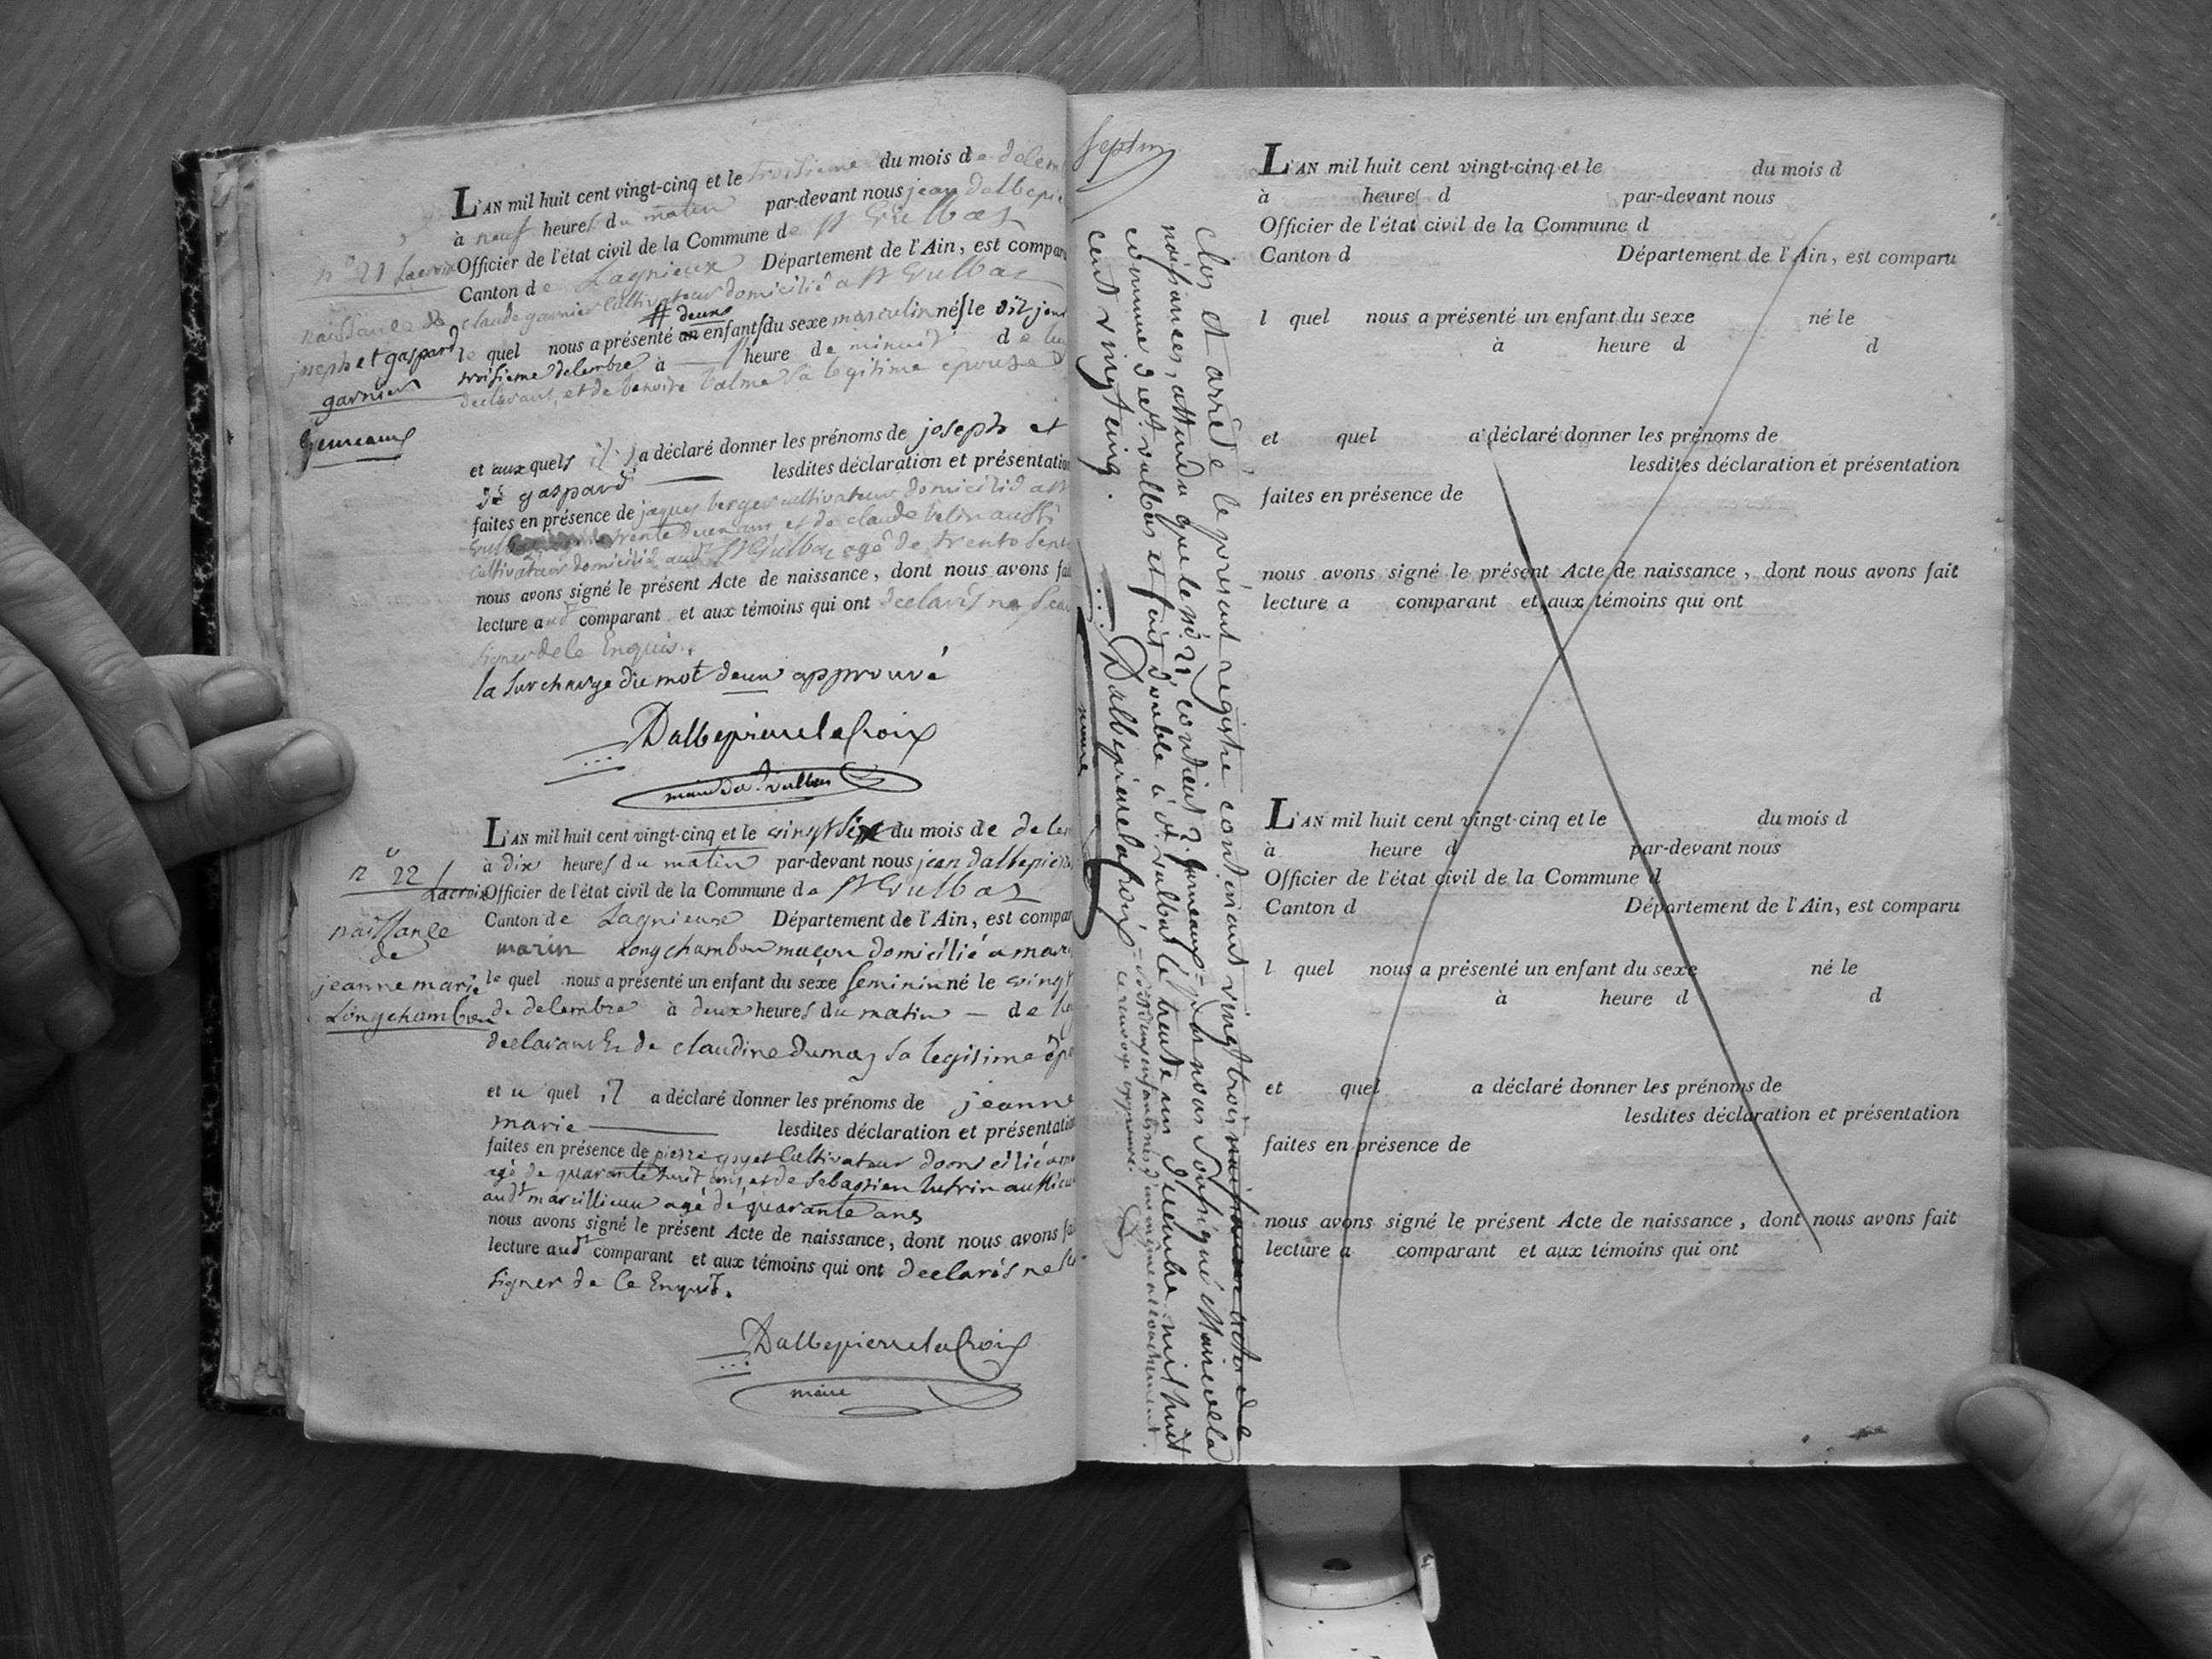 L'AN mil huit cent vingt-cinq et le troisieme du mois de decem
à neuf heures du matin par-devant nous jean dalbepie
Officier de l'état civil de la Commune de St Vulbas
Canton de Lagnieux Département de l'Ain, est compar
claude garnier Cultivateur domicilié a St Vulbas
le quel nous a présenté deux enfants du sexe masculin nés le dit jour
troisieme decembre à heure de minuit de lui
declarant, et de benoite balme sa legitime epouse
et aux quels il a déclaré donner les prénoms de joseph et
de gaspard lesdites déclaration et présentation
faites en présence de jaques berger cultivateur domicilié a St
trente deux ans et de claude belin aussi
Cultivateur domicilié audt St Vulbas agé de trente sept
nous avons signé le présent Acte de naissance, dont nous avons fai
lecture audt comparant et aux témoins qui ont declarés ne scav
signer de ce Enquis.
la surcharge du mot deux approuvé
Dalbepierre lacroix
maire de St. Vulbas
n° 21 Lacroix
naissance de
joseph et gaspard
garnier
Gemeaux
L'AN mil huit cent vingt-cinq et le vingt six du mois de decem
à dix heures du matin par-devant nous jean dalbepierre
Officier de l'état civil de la Commune de St Vulbas
Canton de Lagnieux Département de l'Ain, est compar
marin Longchambon maçon domicilié a marc
le quel nous a présenté un enfant du sexe feminin né le vingt
de decembre à deux heures du matin — de lui
declarant & de claudine Dumas sa legitime épou
et au quel il a déclaré donner les prénoms de jeanne
marie lesdites déclaration et présentation
faites en présence de pierre Cultivateur domicilié a
agé de quarante huit ans, et de Sebastien aussi cul
audt marcillieux agé de quarante ans
nous avons signé le présent Acte de naissance, dont nous avons fai
lecture audt comparant et aux témoins qui ont declarés ne
signer de ce Enquis.
Dalbepierre lacroix
maire
n° 22 Lacroix
naissance
de
jeanne marie
Longchambon
Clos et arrêté le présent registre contenant vingt trois naissances
naissances, attendu que le n° 21 contient 2 gemeaux = par nous soussigné Maire de la
commune de St. Vulbas et fait double à St. Vulbas le trente un decembre mil huit
cent vingt cinq.
Dalbepierre lacroix
maire
ce renvoi approuvé.
L'AN mil huit cent vingt-cinq et le du mois d
à heure d par-devant nous
Officier de l'état civil de la Commune d
Canton d Département de l'Ain, est comparu
l quel nous a présenté un enfant du sexe né le
à heure d d
et quel a déclaré donner les prénoms de
lesdites déclaration et présentation
faites en présence de
nous avons signé le présent Acte de naissance, dont nous avons fait
lecture a comparant et aux témoins qui ont
L'AN mil huit cent vingt-cinq et le du mois d
à heure d par-devant nous
Officier de l'état civil de la Commune d
Canton d Département de l'Ain, est comparu
l quel nous a présenté un enfant du sexe né le
à heure d d
et quel a déclaré donner les prénoms de
lesdites déclaration et présentation
faites en présence de
nous avons signé le présent Acte de naissance, dont nous avons fait
lecture a comparant et aux témoins qui ont